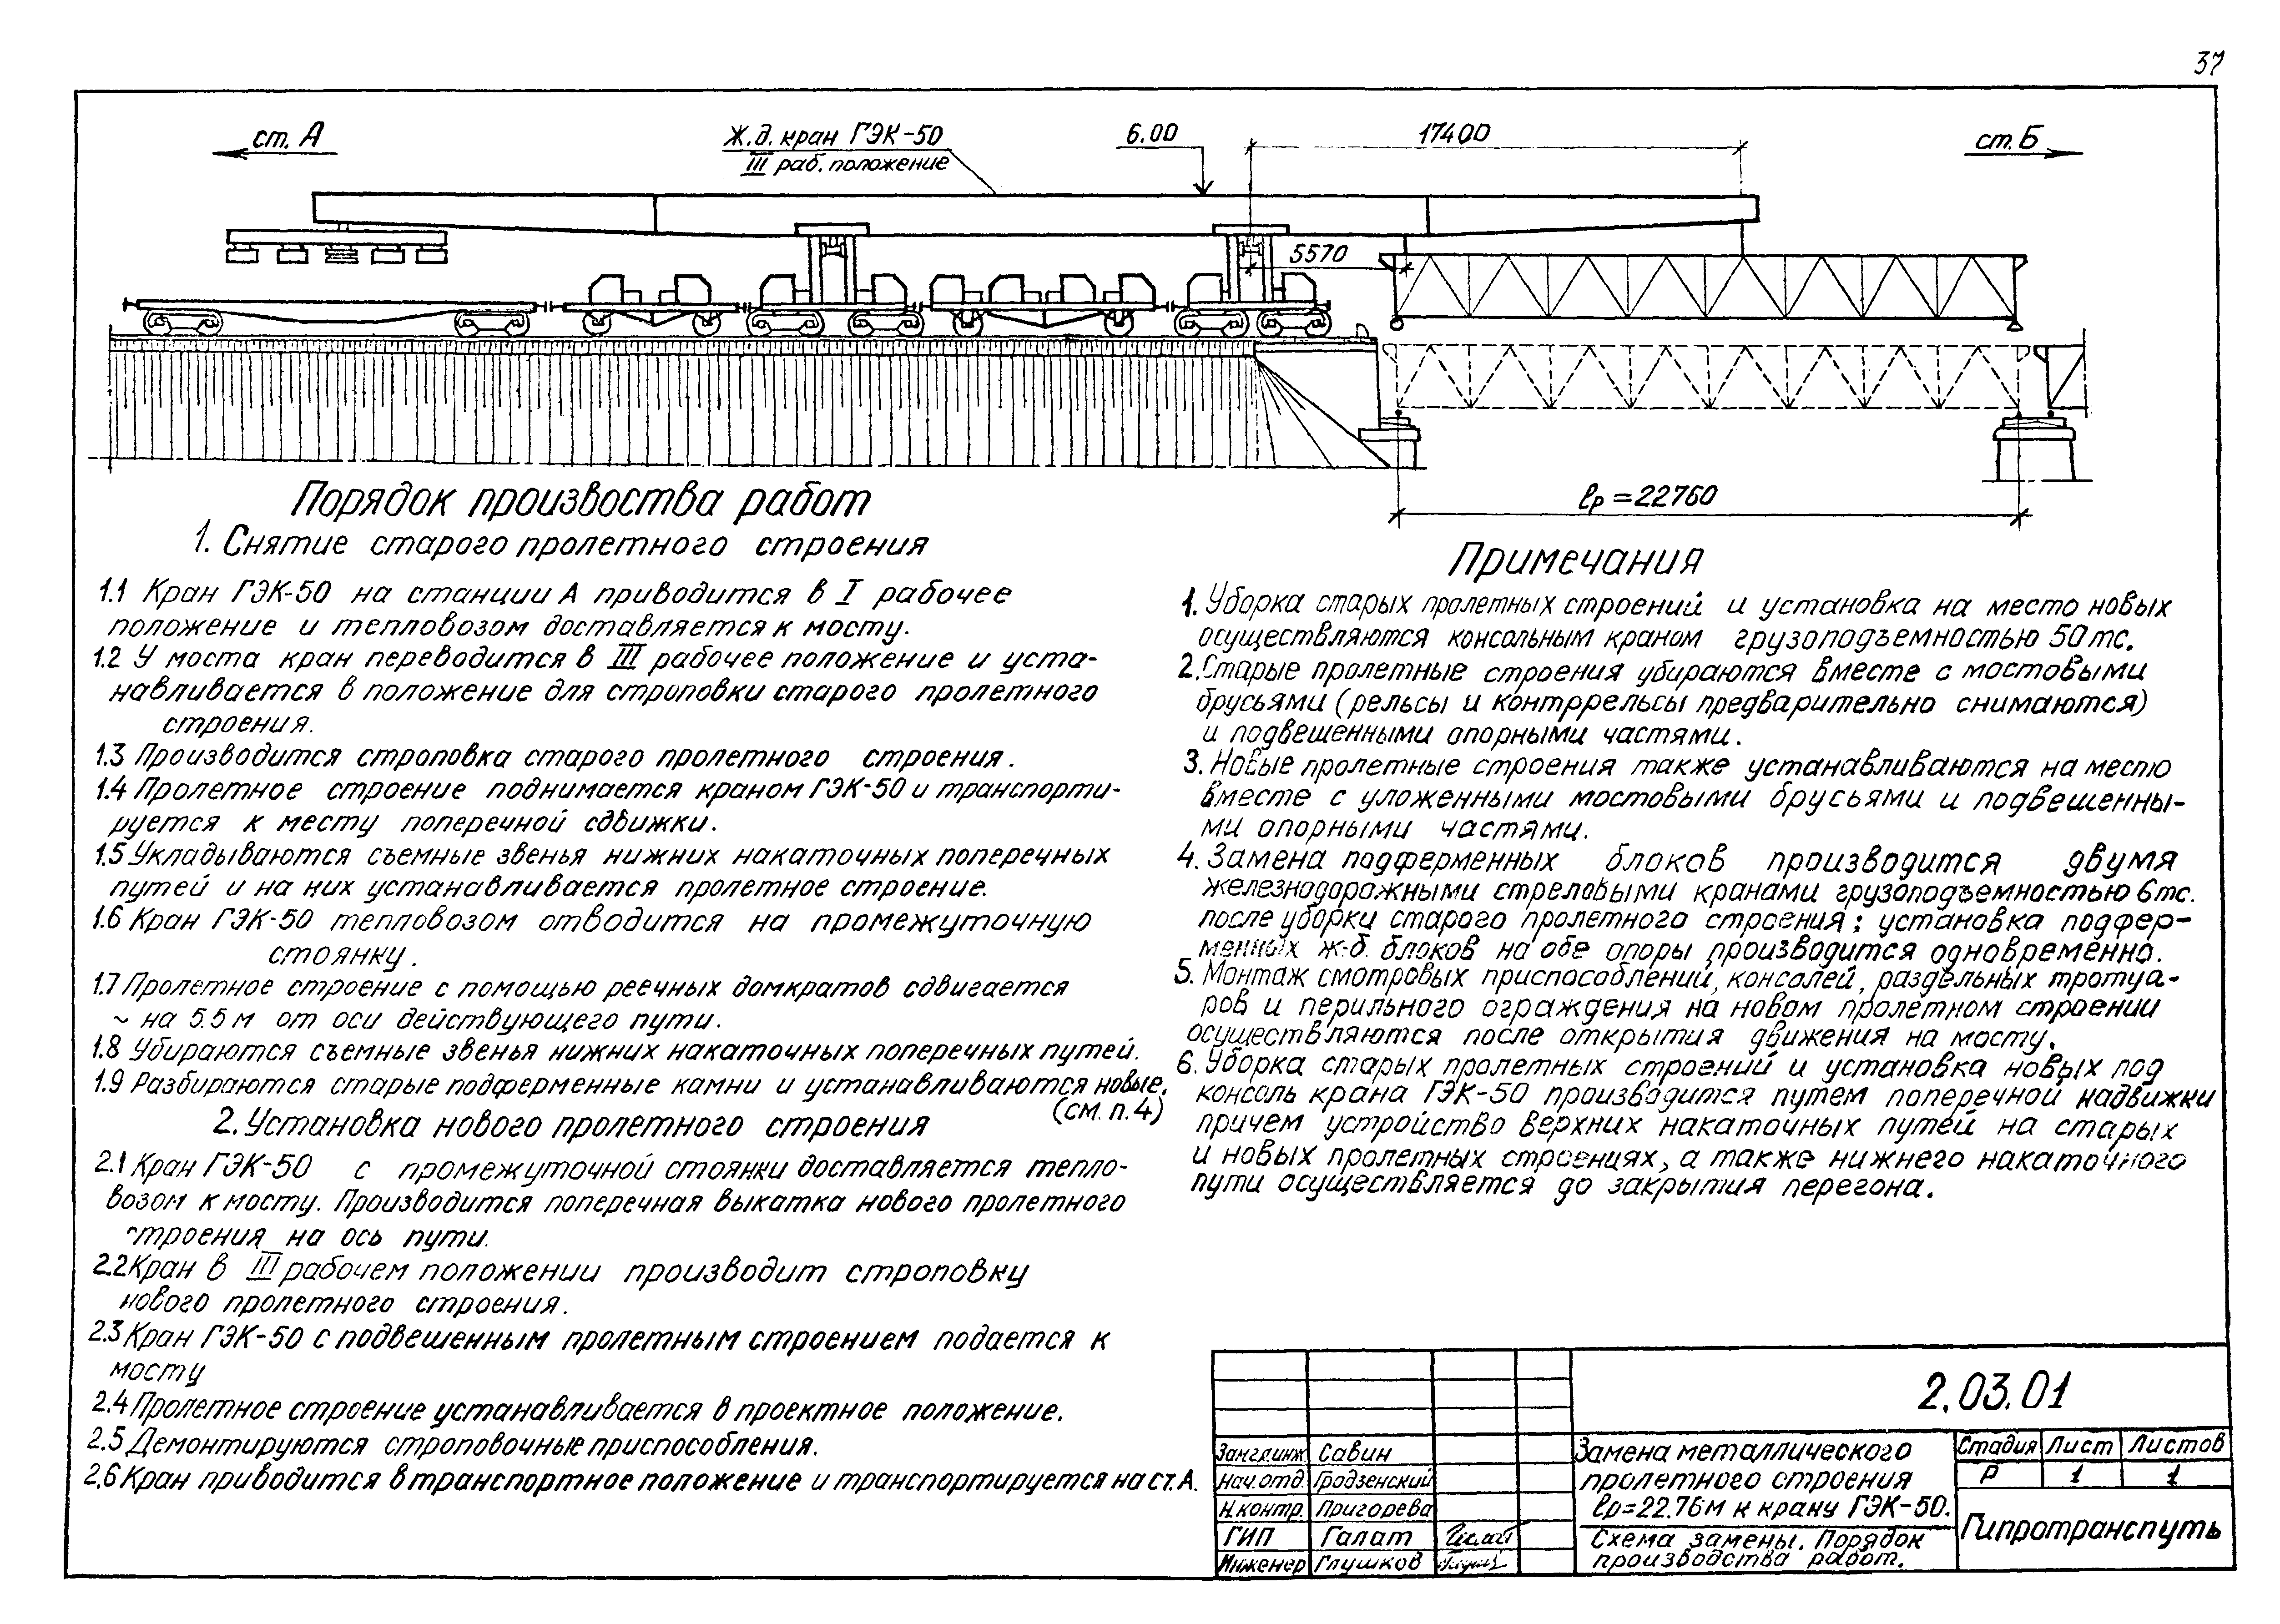 37
ст. А
Ж.д. кран ГЭК-50
III раб. положение
6.00
17400
ст. Б
5570
ℓр = 22760
Порядок произвоства работ
1. Снятие старого пролетного строения
1.1 Кран ГЭК-50 на станции А приводится в I рабочее
положение и тепловозом доставляется к мосту.
1.2 У моста кран переводится в III рабочее положение и уста-
навливается в положение для строповки старого пролетного
строения.
1.3 Производится строповка старого пролетного строения.
1.4 Пролетное строение поднимается краном ГЭК-50 и транспорти-
руется к месту поперечной сдвижки.
1.5 Укладываются съемные звенья нижних накаточных поперечных
путей и на них устанавливается пролетное строение.
1.6 Кран ГЭК-50 тепловозом отводится на промежуточную
стоянку.
1.7 Пролетное строение с помощью реечных домкратов сдвигается
~ на 5.5 м от оси действующего пути.
1.8 Убираются съемные звенья нижних накаточных поперечных путей.
1.9 Разбираются старые подферменные камни и устанавливаются новые.
(см. п. 4)
2. Установка нового пролетного строения
2.1 Кран ГЭК-50 с промежуточной стоянки доставляется тепло-
возом к мосту. Производится поперечная выкатка нового пролетного
строения на ось пути.
2.2 Кран в III рабочем положении производит строповку
нового пролетного строения.
2.3 Кран ГЭК-50 с подвешенным пролетным строением подается к
мосту
2.4 Пролетное строение устанавливается в проектное положение.
2.5 Демонтируются строповочные приспособления.
2.6 Кран приводится в транспортное положение и транспортируется на ст. А.
Примечания
1. Уборка старых пролетных строений и установка на место новых
осуществляются консольным краном грузоподъемностью 50 тс.
2. Старые пролетные строения убираются вместе с мостовыми
брусьями (рельсы и контррельсы предварительно снимаются)
и подвешенными опорными частями.
3. Новые пролетные строения также устанавливаются на место
вместе с уложенными мостовыми брусьями и подвешенны-
ми опорными частями.
4. Замена подферменных блоков производится двумя
железнодорожными стреловыми кранами грузоподъемностью 6 тс.
после уборки старого пролетного строения; установка подфер-
менных ж-б. блоков на обе опоры производится одновременно.
5. Монтаж смотровых приспособлений, консолей, раздельных тротуа-
ров и перильного ограждения на новом пролетном строении
осуществляются после открытия движения на мосту.
6. Уборка старых пролетных строений и установка новых под
консоль крана ГЭК-50 производится путем поперечной надвижки
причем устройство верхних накаточных путей на старых
и новых пролетных строениях, а также нижнего накаточного
пути осуществляется до закрытия перегона.
2.03.01
Зам.гл.инж. Савин
Нач. отд. Гродзенский
Н.контр. Пригорева
ГИП Галат
Инженер Глушков
Замена металлического
пролетного строения
ℓр=22.76м к крану ГЭК-50.
Схема замены. Порядок
производства работ.
Стадия Лист Листов
Р 1 1
Гипротранспуть